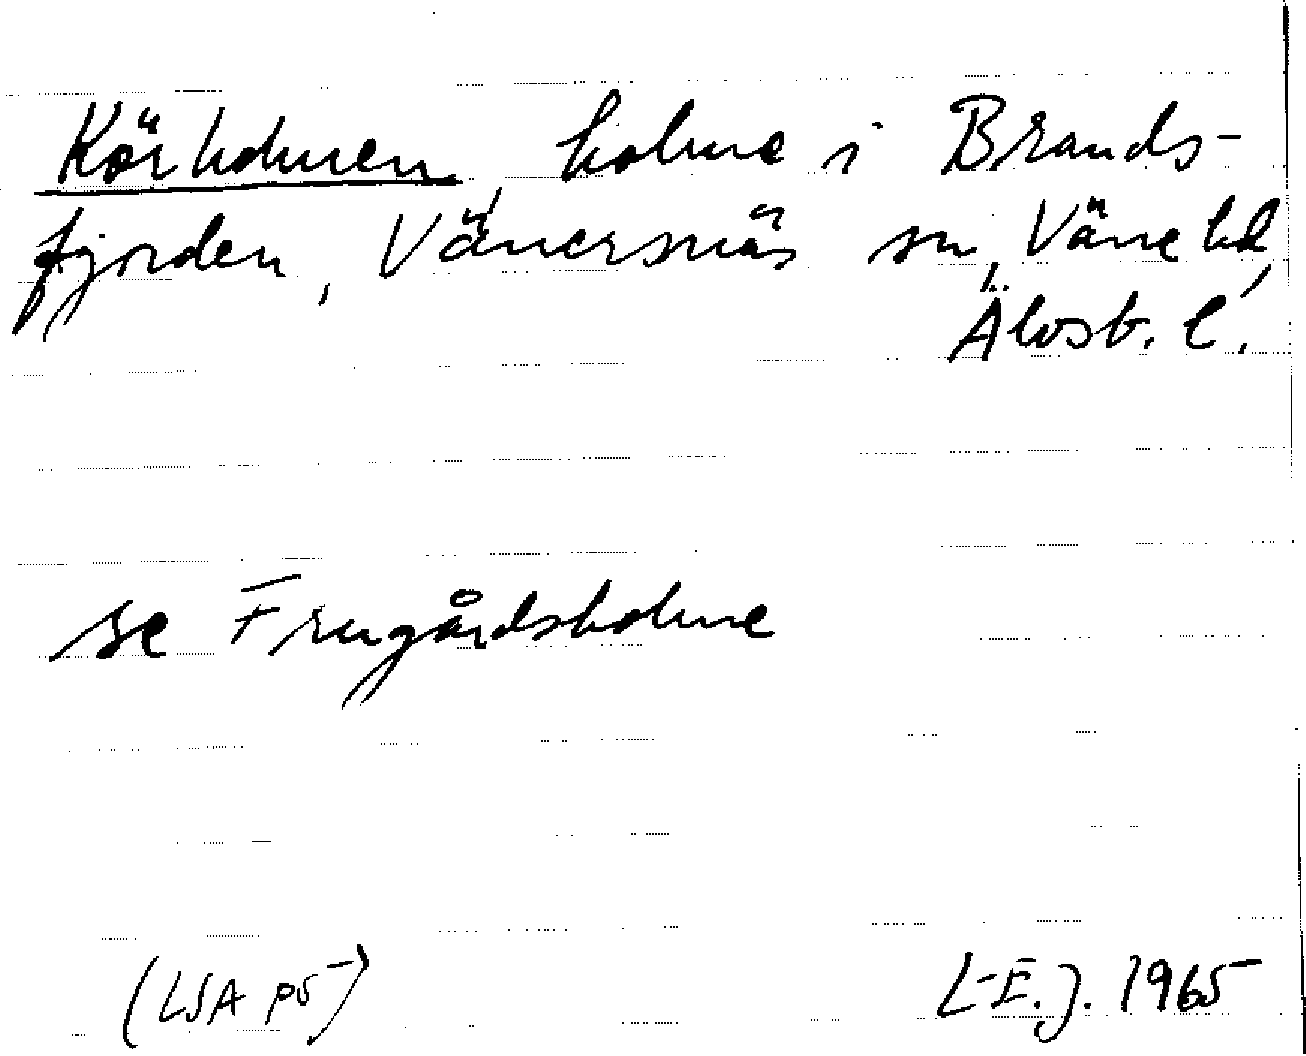 Körholmen, holme i Brands-
fjorden, Vänersnäs sn, Väne hd,
Älvsb. l.
se Frugårdsholme
(LSA p5) L-E.J. 1965